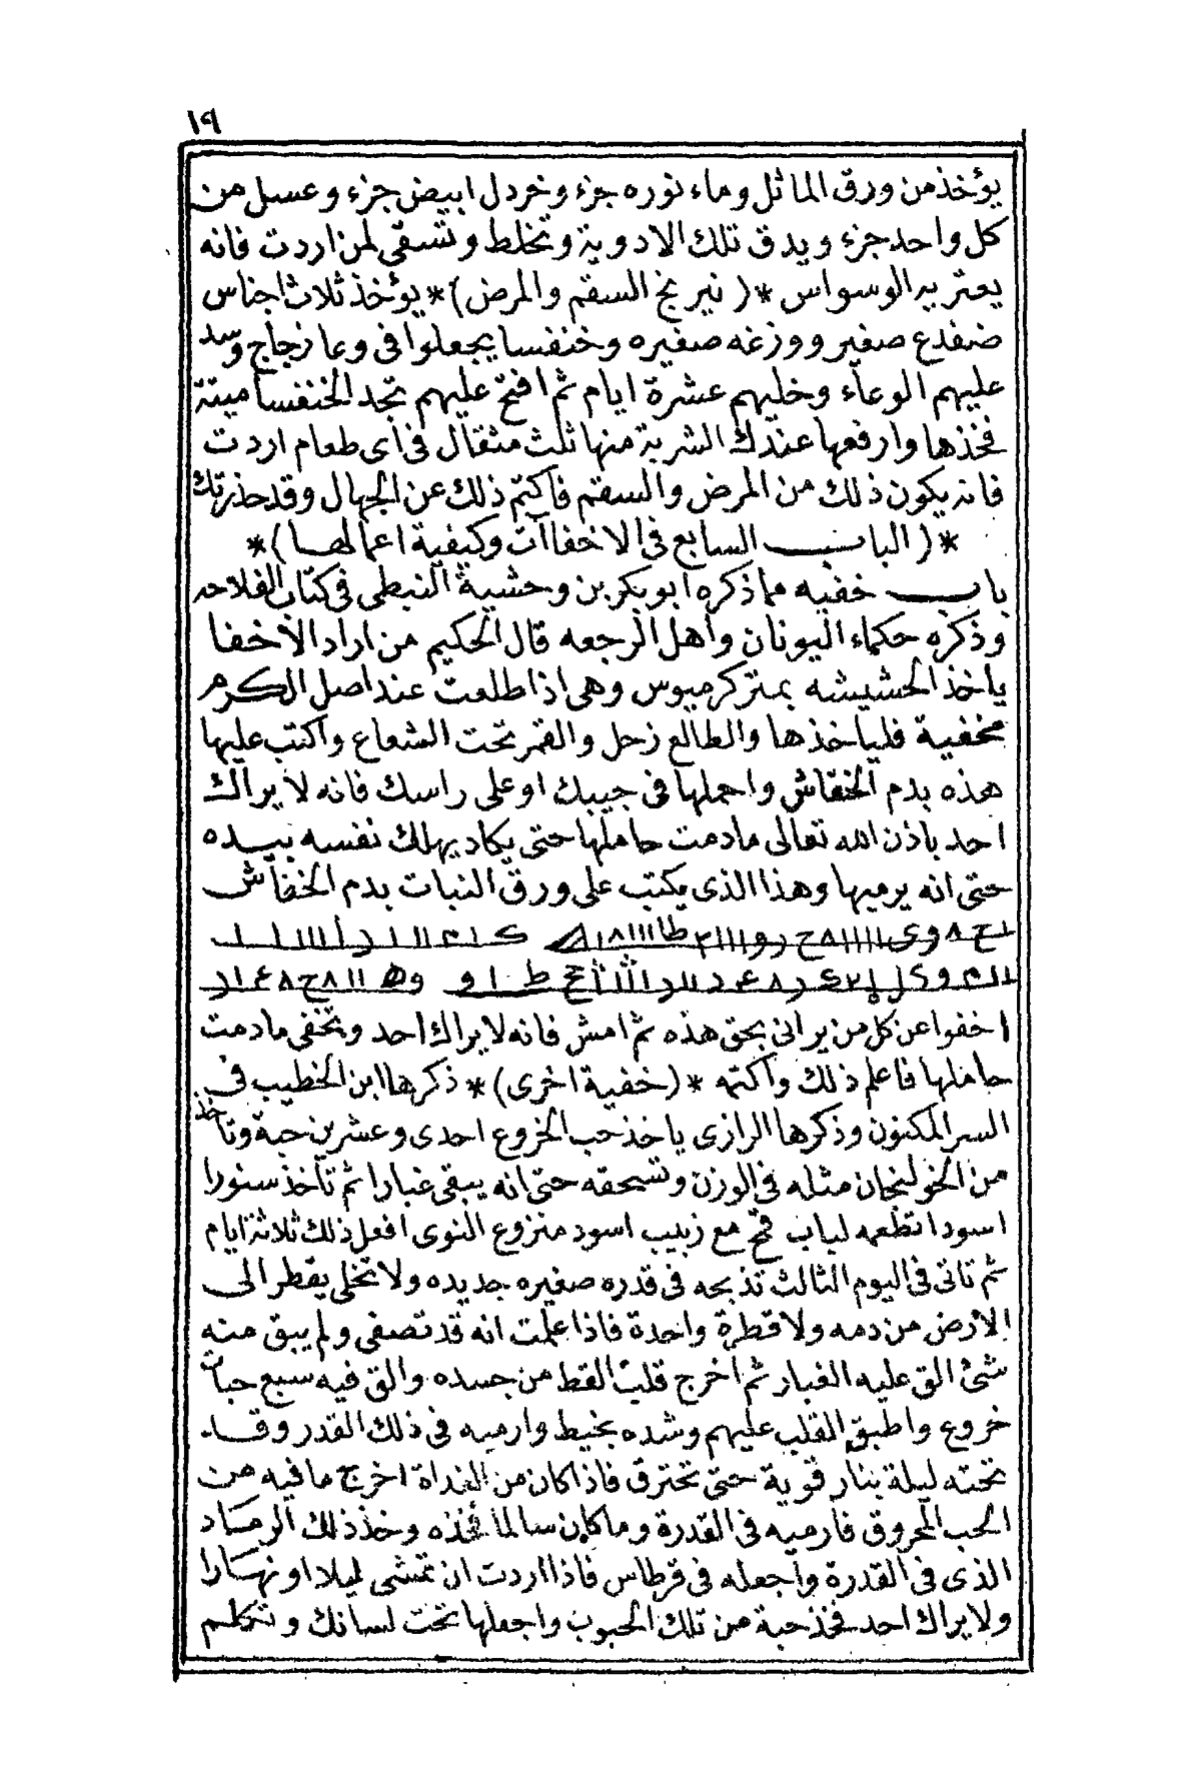 ١٩
يؤخذ من ورق الماثل وماء نوره جزء وخردل ابيض جزء وعسل من
كل واحد جزء ويدق تلك الادوية وتخلط وتسقى لمن اردت فانه
يعتريه الوسواس *( نيرنج السقم والمرض )* يؤخذ ثلاث اجناس
ضفدع صغير ووزغه صغيره وخنفسا يجعلوا فى وعا زجاج وسد
عليهم الوعاء وخليهم عشرة ايام ثم افتح عليهم تجد الخنفسا ميتة
فخذها وارفعها عندك الشربة منها ثلث مثقال فى اى طعام اردت
فانه يكون ذلك من المرض والسقم فاكتم ذلك عن الجهال وقد حذرتك
*( الباب السابع فى الاخفاآت وكيفية اعمالها )*
باب خفيه مما ذكره ابو بكر بن وحشية النبطى فى كتاب الفلاحه
وذكره حكماء اليونان واهل الرجعه قال الحكيم من اراد الاخفا
ياخذ الحشيشه وهى اذا طلعت عند اصل الكرم
مخفية فلياخذها والطالع زحل والقمر تحت الشعاع واكتب عليها
هذه بدم الخفاش واحملها فى جيبك او على راسك فانه لا يراك
احد باذن الله تعالى مادمت حاملها حتى يكاد يهلك نفسه بيده
حتى انه يرميها وهذا الذى يكتب على ورق النبات بدم الخفاش
اخفوا عن كل من يرانى بحق هذه ثم امش فانه لا يراك احد وتخفى مادمت
حاملها فاعلم ذلك واكتمه *( خفية اخرى )* ذكرها ابن الخطيب فى
السر المكنون وذكرها الرازى ياخذ حب الخروع احدى وعشرين حبة وتاخذ
من الخولنجان مثله فى الوزن وتسحقه حتى انه يبقى غبارا ثم تأخذ سنورا
اسودا تطعمه لباب قمح مع زبيب اسود منزوع النوى افعل ذلك ثلاثة ايام
ثم تاتى فى اليوم الثالث تذبحه فى قدره صغيره جديده ولا تخلى يقطر الى
الارض من دمه ولا قطرة واحدة فاذا علمت انه قد تصفى ولم يبق منه
شئ الق عليه الغبار ثم اخرج قلب القط من جسده والق فيه سبع حبات
خروع واطبق القلب عليهم وشده بخيط وارميه فى ذلك القدر وقد
تحته ليلة بنار قوية حتى تحترق فاذا كان من الغداة اخرج ما فيه من
الحب المحروق فارميه فى القدرة وما كان سالما فخذه وخذ ذلك الرماد
الذى فى القدرة واجعله فى قرطاس فاذا اردت ان تمشى ليلا او نهارا
ولا يراك احد فخذ حبة من تلك الحبوب واجعلها تحت لسانك وتتكلم